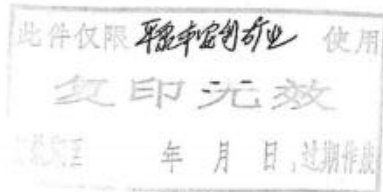 此件仅限平泉市宝利矿业使用
复印无效
有效期至 年 月 日,过期作废